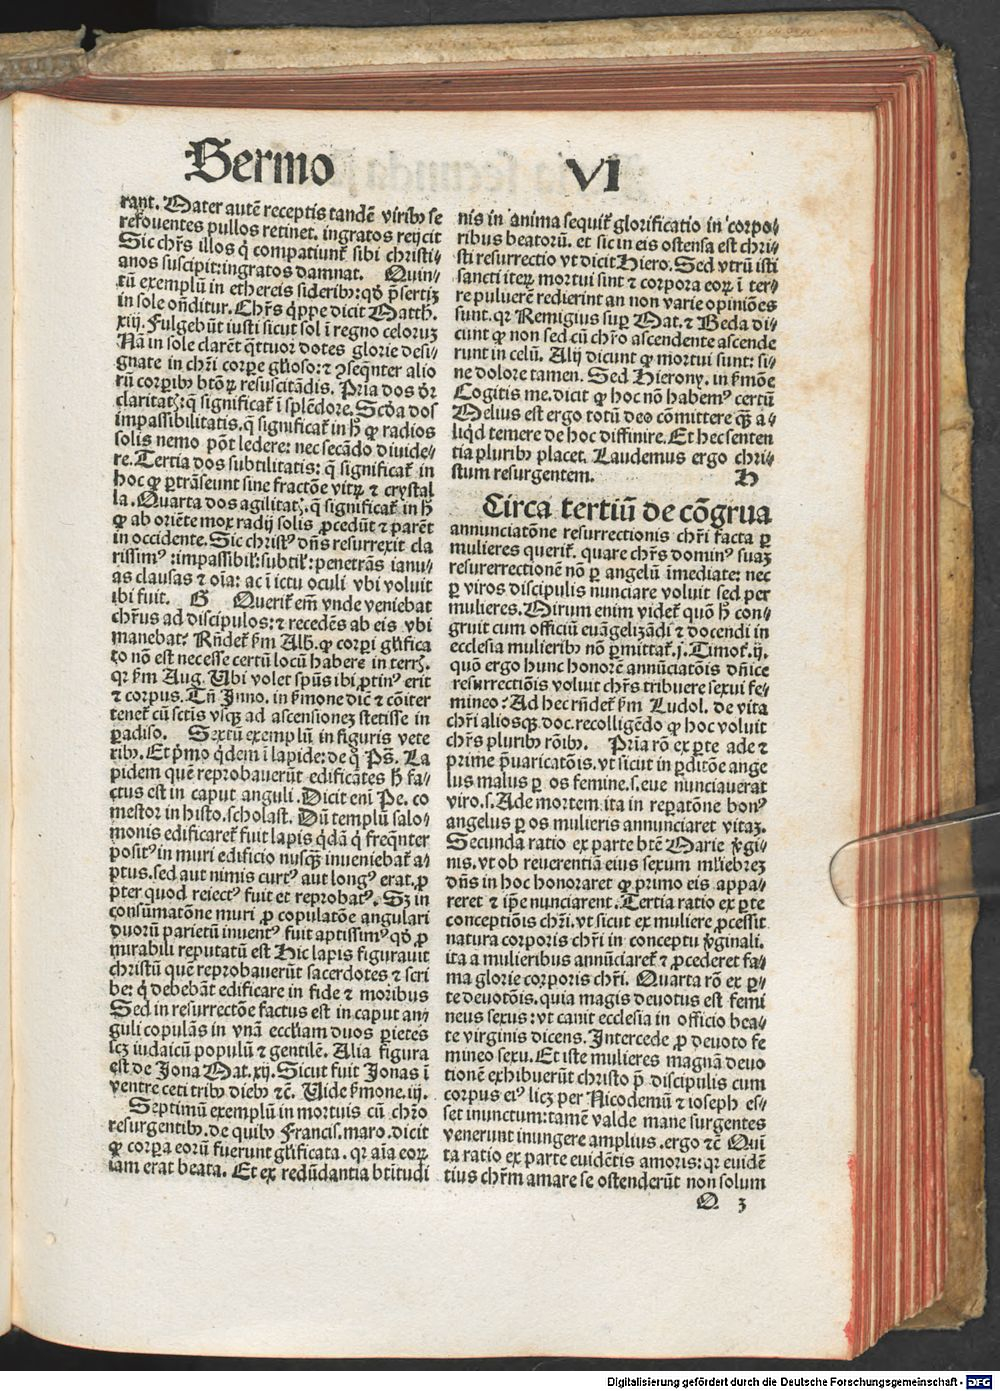 Sermo VI
rant. Mater autē receptis tandē viribꝰ se
refouentes pullos retinet. ingratos reijcit
Sic chr̄s illos q̇ compatiunt̄ sibi christi⸗
anos suscipit: ingratos damnat. Quin⸗
tū exemplū in ethereis sideribꝰ: qđ p̄sertiȝ
in sole oñditur. Chr̄s q̇ppe dicit Matth.
xiij. Fulgebūt iusti sicut sol ī regno celoruȝ
Nā in sole clarēt q̈ttuor dotes glorie desi⸗
gnate in chr̄i corpe gl̄ioso: ⁊ ꝯseq̄nter alio
rū corꝑibꝰ btōꝝ resuscitādis. Pria dos dr̄
claritatꝭ: q̄ significat̄ ī splēdore. Scđa dos
impassibilitatis. q̄ significat̄ in h̄ ꝙ radios
solis nemo pōt ledere: nec secādo diuide⸗
re. Tertia dos subtilitatis: q̄ significat̄ in
hoc ꝙ ꝑtrāseunt sine fractōe vitꝝ ⁊ crystal
la. Quarta dos agilitatꝭ. q̄ significat̄ in h̄
ꝙ ab oriēte mox radij solis ꝓcedūt ⁊ parēt
in occidente. Sic christꝰ dn̄s resurrexit cla
rissimꝰ: impassibil̄: subtil̄: penetrās ianu⸗
as clausas ⁊ oīa: ac ī ictu oculi vbi voluit
ibi fuit. G Querit̄ em̄ vnde veniebat
chr̄us ad discipulos: ⁊ recedēs ab eis vbi
manebat? Rn̄det̄ ẜm Alb. ꝙ corpi gl̄ifica
to nō est necesse certū locū habere in terrꝭ.
qꝛ ẜm Aug. Vbi volet spūs ibi ꝓtinꝰ erit
⁊ corpus. Tn̄ Inno. in ẜmone dic̄ ⁊ cōiter
tenet̄ cū sctīs vsqꝫ ad ascensioneȝ stetisse in
ꝑadiso. Sextū exemplū in figuris vete
ribꝰ. Et p̄mo q̇dem ī lapide: de q° Ps̄. La
pidem quē reprobauerūt edificātes h̄ fa⸗
ctus est in caput anguli. Dicit eni Pe. co
mestor in histo. scholast. Dū templū salo⸗
monis edificaret̄ fuit lapis q̇dā q̇ freq̄nter
positꝰ in muri edificio nusqꝫ inueniebat̄ a⸗
ptus. sed aut nimis curtꝰ aut longꝰ erat. ꝓ
pter quod reiectꝰ fuit et reprobatꝰ. Sȝ in
consūmatōne muri ꝓ copulatōe angulari
duorū parietū inuentꝰ fuit aptissimꝰ qđ ꝓ
mirabili reputatū est Hic lapis figurauit
christū quē reprobauerūt sacerdotes ⁊ scri
be: q̇ debebāt edificare in fide ⁊ moribus
Sed in resurrectōe factus est in caput an⸗
guli copulās in vnā eccl̄iam duos ꝑietes
lcȝ iudaicū populū ⁊ gentilē. Alia figura
est de Jona Mat. xij. Sicut fuit Jonas ī
ventre ceti tribꝰ diebꝰ ⁊c̄. Vide ẜmone. iij.
Septimū exemplū in mortuis cū chr̄o
resurgentibꝰ. de quibꝰ Francis. maro. dicit
ꝙ corpa eorū fuerunt gl̄ificata. qꝛ aīa eoꝝ
iam erat beata. Et ex redūdantia btītudi
nis in anima sequit̄ glorificatio in corpo⸗
ribus beatorū. et sic in eis ostensa est chri⸗
sti resurrectio vt dicit Hiero. Sed vtrū isti
sancti iteꝝ mortui sint ⁊ corpora eoꝝ ī ter⸗
re puluerē redierint an non varie opiniōes
sunt. qꝛ Remigius suꝑ Mat. ⁊ Beda di⸗
cunt ꝙ non sed cū chr̄o ascendente ascende
runt in celū. Alij dicunt ꝙ mortui sunt: si⸗
ne dolore tamen. Sed Hierony. in ẜmōe
Cogitis me. dicit ꝙ hoc nō habemꝰ certū
Melius est ergo totū deo cōmittere qꝫ a⸗
liqd temere de hoc diffinire. Et hec senten
tia pluribꝰ placet. Laudemus ergo chri⸗
stum resurgentem. H
Circa tertiū de cōgrua
annunciatōne resurrectionis chr̄i facta ꝑ
mulieres querit̄. quare chr̄s dominꝰ suaȝ
resurerrectionē nō ꝑ angelū īmediate: nec
ꝑ viros discipulis nunciare voluit sed per
mulieres. Mirum enim videt̄ quō h̄ con⸗
gruit cum officiū euāgelizādi ⁊ docendi in
ecclesia mulieribꝰ nō ꝑmittat̄. j. Timot̄. ij.
quō ergo hunc honorē annūciatōis dn̄ice
resurrectiōis voluit chr̄s tribuere sexui fe⸗
mineo? Ad hec rn̄det̄ ẜm Ludol. de vita
chr̄i aliosqꝫ. doc. recolligēdo ꝙ hoc voluit
chr̄s pluribꝰ rōībꝰ. Pria rō ex ꝑte ade ⁊
prime p̄uaricatōis. vt sicut in ꝑditōe ange
lus malus ꝑ os femine. s. eue nunciauerat
viro. s. Ade mortem ita in reꝑatōne bonꝰ
angelus ꝑ os mulieris annunciaret vitaȝ.
Secunda ratio ex parte btē Marie v̓gi⸗
nis. vt ob reuerentiā eius sexum ml̄iebreȝ
dn̄s in hoc honoraret ꝙ primo eis appa⸗
reret ⁊ ip̄e nunciarent. Tertia ratio ex ꝑte
conceptiōis chr̄i. vt sicut ex muliere ꝓcessit
natura corporis chr̄i in conceptu v̓ginali.
ita a mulieribus annūciaret̄ ⁊ ꝓcederet fa⸗
ma glorie corporis chr̄i. Quarta rō ex ꝑ⸗
te deuotōis. quia magis deuotus est femi
neus sexus: vt canit ecclesia in officio bea⸗
te virginis dicens. Intercede ꝓ deuoto fe
mineo sexu. Et iste mulieres magnā deuo
tionē exhibuerūt christo p̄ discipulis cum
corpus eiꝰ licȝ per Nicodemū ⁊ ioseph es⸗
set inunctum: tamē valde mane surgentes
venerunt inungere amplius. ergo ⁊c̄ Quī
ta ratio ex parte euidētis amoris: qꝛ euidē
tius chr̄m amare se ostenderūt non solum
O 3
Digitalisierung gefördert durch die Deutsche Forschungsgemeinschaft - DFG